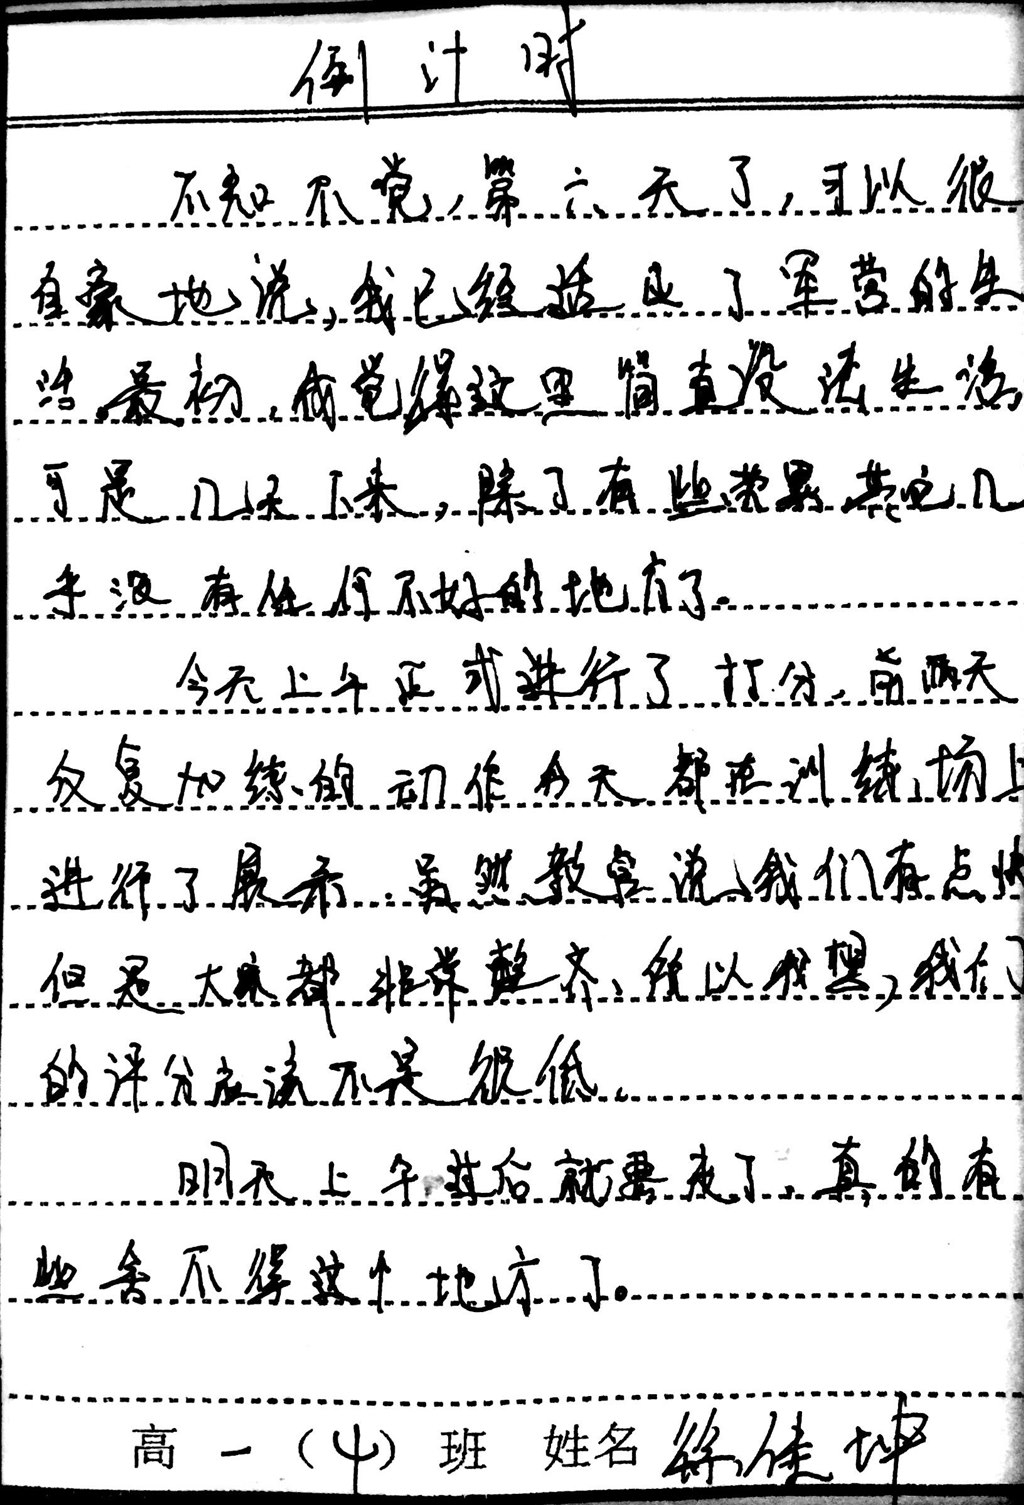 倒计时
不知不觉,第六天了,可以很
自豪地说,我已经适应了军营的生
活。最初,我觉得这里简直没法生活,
可是几天下来,除了有些劳累,其它几
乎没有任何不好的地方了。
今天上午正式进行了打分,前两天
反复加练的动作今天都在训练场上
进行了展示。虽然教官说,我们有点快
但是大家都非常整齐,所以我想,我们
的评分应该不是很低。
明天上午过后就要走了,真的有
些舍不得这个地方了。
高一(4)班 姓名 徐佳坤